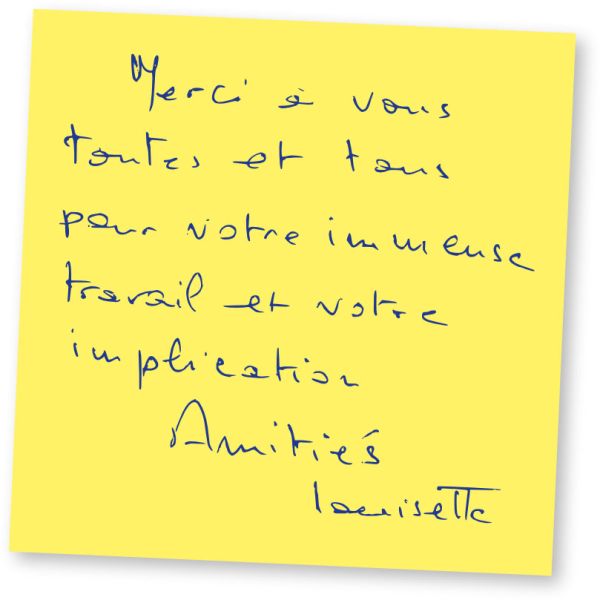 Merci à vous
toutes et tous
pour votre immense
travail et votre
implication
Amitiés
Louisette